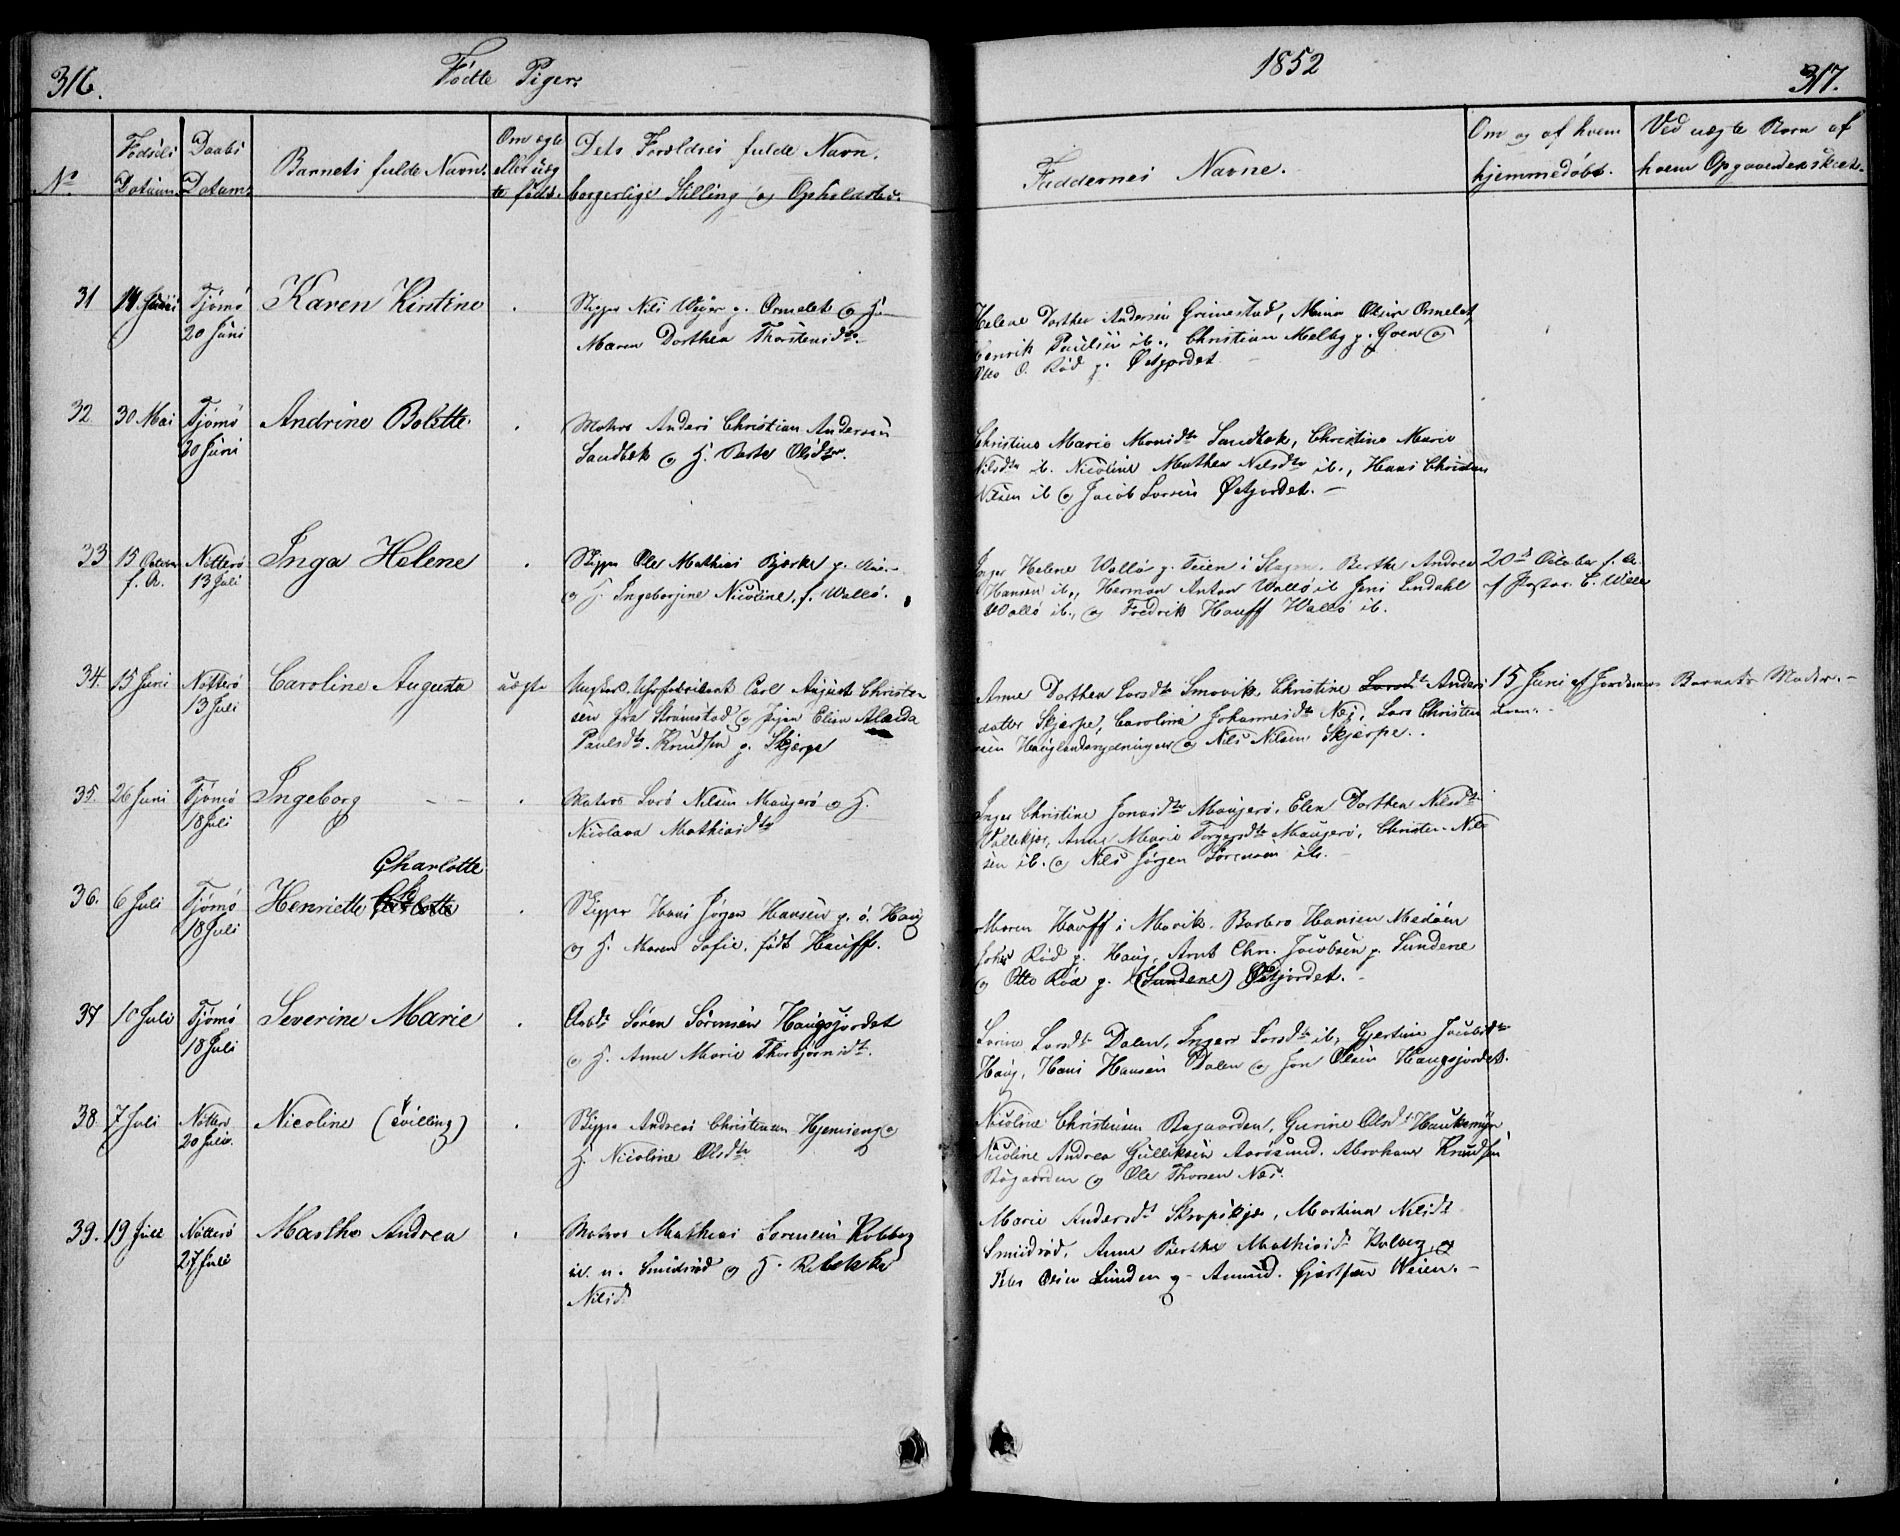 316.
Fødte Piger.
1852
317.
No
Fødsels Datum.
Daabs Datum.
Barnets fulde Navn.
Om ægte eller uæg te fødte.
Dets Forældres fulde Navn, borgerlige Stilling og Opholdsted.
Faddernes Navne.
Om og af hvem hjemmedøbt.
Ved uægte Børn af hvem Opgavenden skeet.
31
14 Juni
Tjømø 20 Juni
Karen Kirstine
Skipper Nils Weyer p. Ormelet og H.
Maren Dorthea Thorstensdtr
Helene Dorthea Andersen Grimestad, Maria Olsen Ormelet,
Henrik Paulsen ib., Christian Melby p. Goen og
Otto O. Rød p. Østjordet
32
30 Mai
Tjømø 20 Juni
Andrine Bolette
Matros Anders Christian Andersen
Sandbek og H. Berte Olsdtr.
Christine Marie Monsdtr Sandbek, Christine Marie
Nilsdtr ib. Nicoline Mathea Nilsdtr ib., Hans Christian
Nilsen ib og Jacob Larsen Østjordet. –
33
15 October f. A.
Nøtterø 13 Juli
Inga Helene
Skipper Ole Mathias Bjerke p.
og H. Ingeborgine Nicoline, f. Wallø.
Inger Helene Wallø p. Teien i Slagen. Berthe Andrea
Hansen ib., Herman Anton Wallø ib Jens Lindahl
Wallø ib., og Fredrik Hauff Wallø ib.
20de October f. A.
af Pastor C.
34.
15 Juni
Nøtterø 13 Juli
Caroline Augusta
uægte
Ungkarl Uhrfabrikant Carl August Christen
sen fra Strømstad og Pigen Elisa Alaida
Paulsdtr. Knudsen p. Skjerpe
Anne Dorthea Larsdtr Smovik, Christine Larsdt Anders
datter Skjerpe, Caroline Johannesdtr Næs, Lars Christen
sen Hauglandsrydningen og Nils Nilsen Skjerpe.
15 Juni af Jordemo
deren.
Barnets Moder. –
35.
26 Juni
Tjømø 18 Juli
Ingeborg
Matros Lars Nilsen Maugerø og H.
Nicolava Mathiasdtr
Inger Christine Jonasdtr Maugerø, Elen Dorthea Nilsdtr
Vallekjær, Anne Marie Torgersdtr Maugerø, Christen Nil
sen ib. og Nils Jørgen Sørensen ib. –
36.
6 Juli
Tjømø 18 Juli
Charlotte
Henriette
Skipper Hans Jørgen Hansen p. ø. Haug
og H. Maren Sofie, født Hauff.
Maren Hauff i Mavik. Barbro Hansen Medøen
Johs Rød p. Haug, Arnt Chr. Jacobsen p. Sundene
og Otto Rød p. (Sundene) Østjordet. –
37
10 Juli
Tjømø 18 Juli
Severine Marie
Arbdr Søren Sørensen Haugsjordet
og H. Anne Marie Thorbjørnsdtr.
Larine Larsdtr Dalen, Inger Larsdtr ib., Gjertine Jacobsdtr
Haug, Hans Hansen Dalen og Jon Olsen Haugsjordet.
38.
7 Juli
Nøtterø 20 Juli.
Nicoline (Tvilling)
Skipper Andreas Christensen Hjemseng og
H. Nicoline Olsdtr
Nicoline Christensen Bøgaarden, Gurine Olsdt Haukemyr
Nicoline Andrea Gulliksen Aarøsund. Abraham Knudsen
Bøgaarden og Ole Thorsen Næs.
39.
19 Juli
Nøtterø 27 Juli
Marthe Andrea
Matros Mathias Sørensen Kolberg
ei. u. Smidsrød og H. Rebekka
Nilsdt
Marie Andersdt Skrapekjær, Martina Nilsdt
Smidsrød, Anne Berthe Mathiasdt Kolberg, og
Peder Olsen Lunden og Amund Gjertsen Weien. –